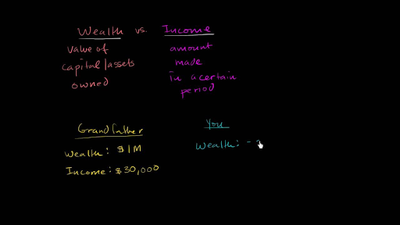 Wealth vs. Income
value of
capital/assets
owned
amount
made
in a certain
period
Grandfather
Wealth: $1M
Income: $30,000
You
Wealth: -